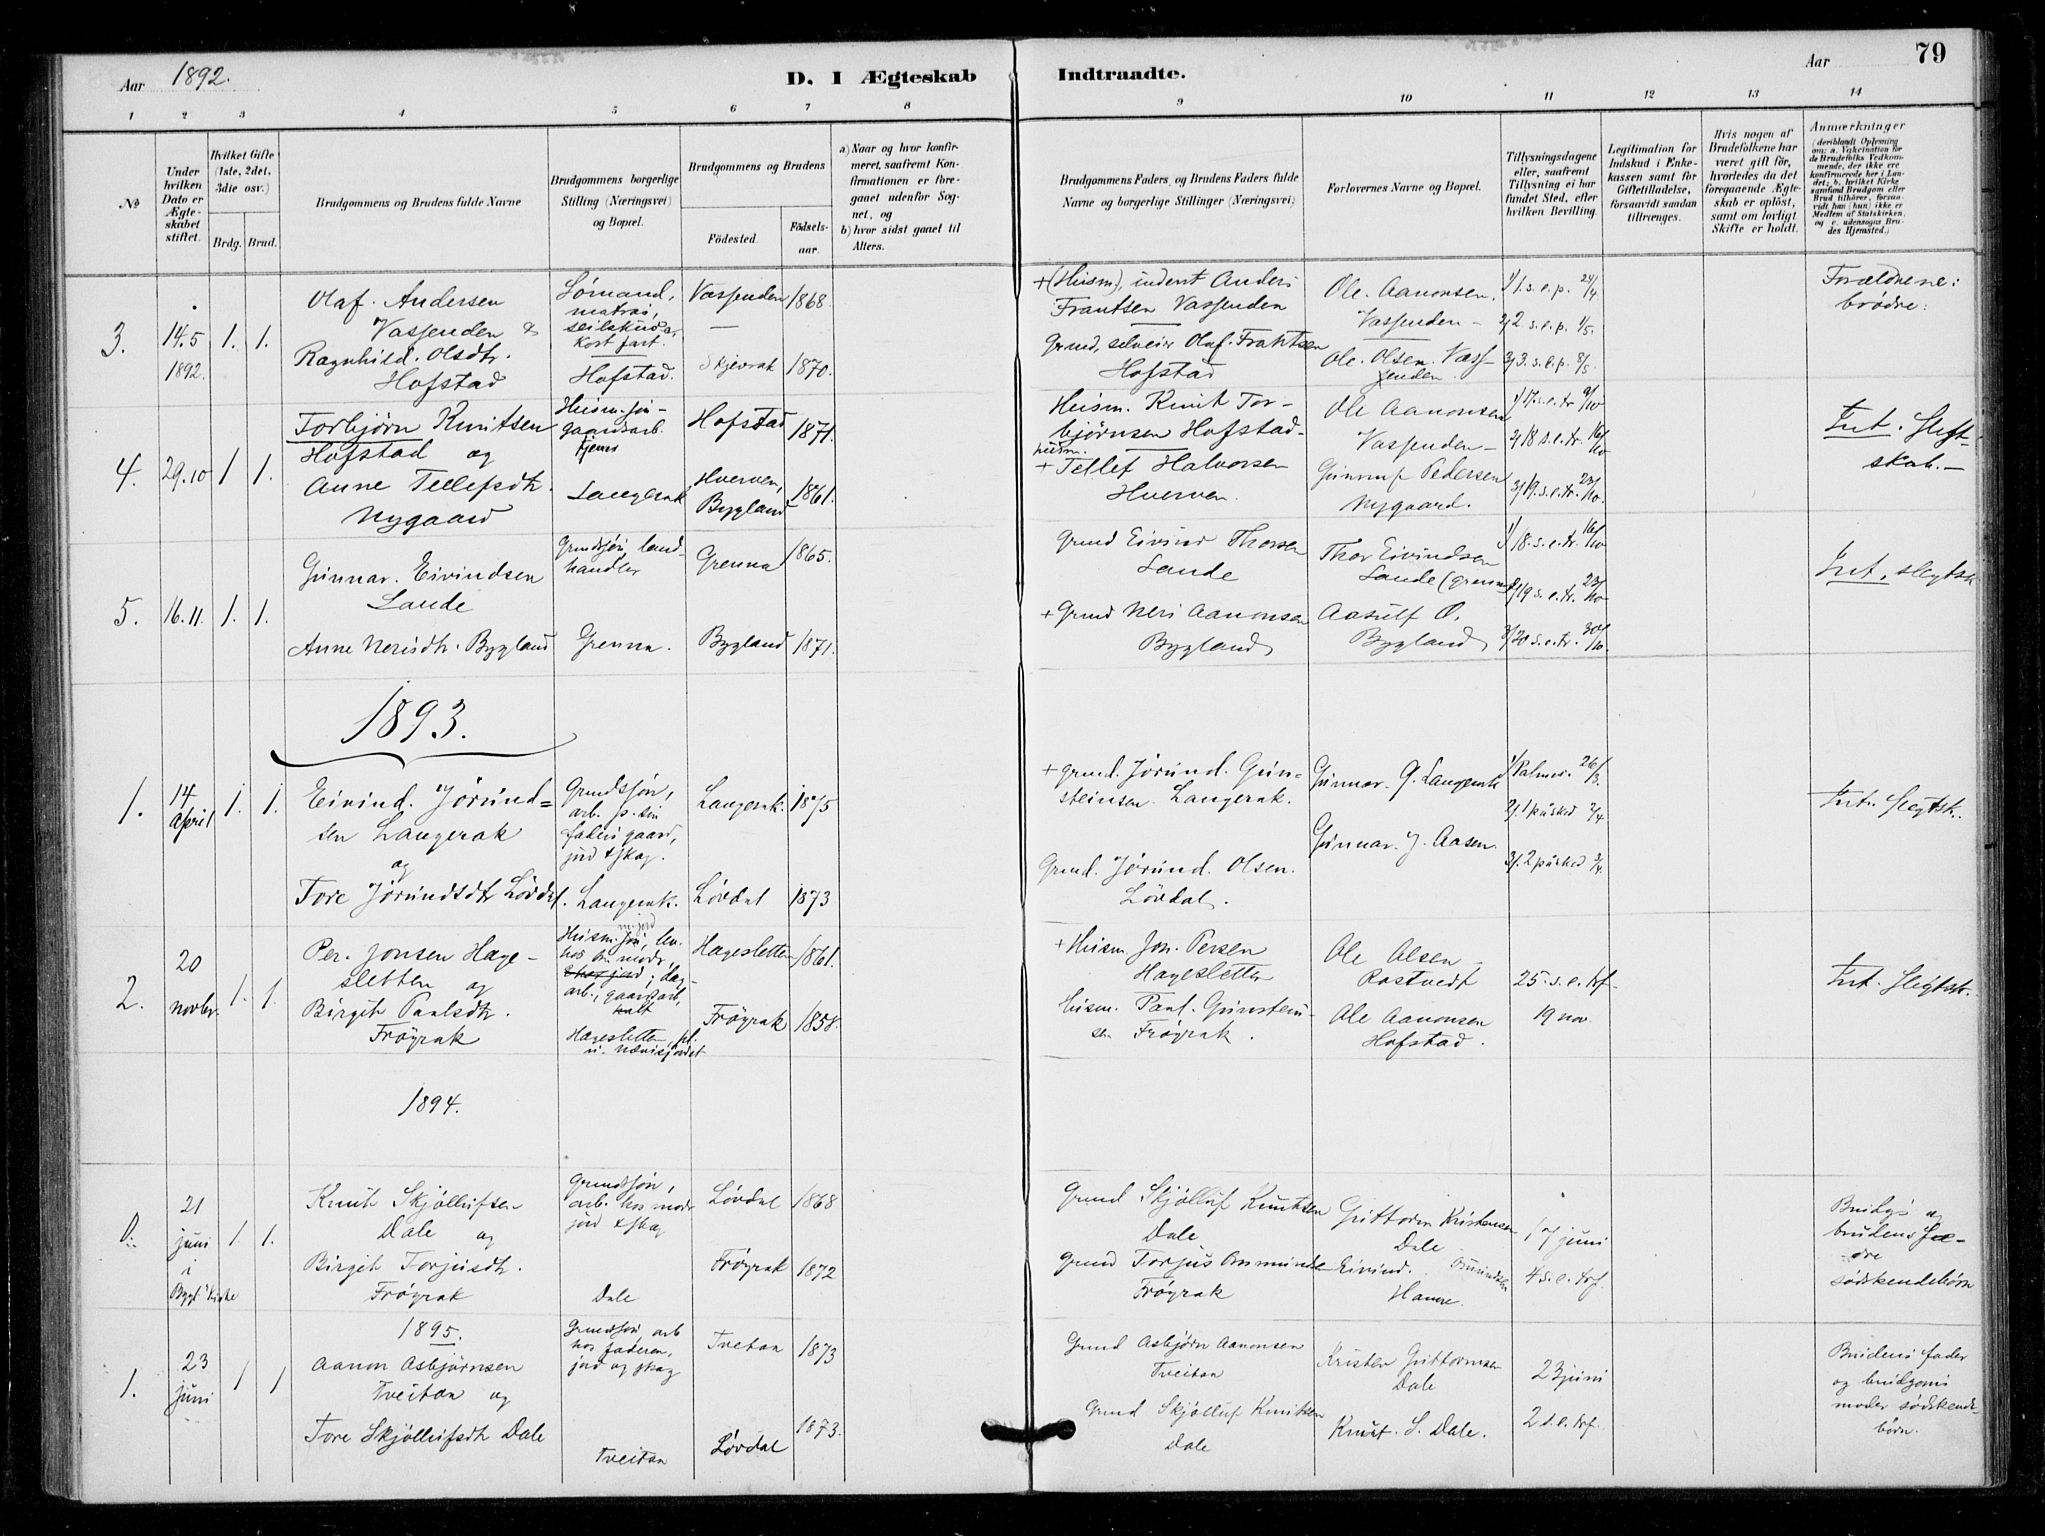 Aar 1892.
D. I Ægteskab Indtraadte.
Aar 79
1 2 3 4 5 6 7 8 9 10 11 12 13 14
No
Under hvilken Dato er Ægteskabet stiftet.
Hvilket Gifte (1ste, 2det, 3die osv.)
Brdg. Brud.
Brudgommens og Brudens fulde Navne
Brudgommens borgerlige Stilling (Næringsvei) og Bopæl.
Brudgommens og Brudens
Födested. Födsels-aar.
a) Naar og hvor konfirmeret, saafremt Konfirmationen er foregaaet udenfor Sognet, og
b) hvor sidst gaaet til Alters.
Brudgommens Faders og Brudens Faders fulde Navne og borgerlige Stillinger (Næringsvei)
Forlovernes Navne og Bopæl.
Tillysningsdagene eller, saafremt Tillysning ei har fundet Sted, efter hvilken Bevilling.
Legitimation for Indskud i Enkekassen samt for Giftetilladelse, forsaavidt saadan tiltrænges.
Hvis nogen af Brudefolkene har været gift för, hvorledes da det foregaaende Ægteskab er oplöst, samt om lovligt Skifte er holdt.
Anmærkninger (deriblandt Oplysning om: a. Vakcination for de Brudefolks Vedkommende, der ikke ere konfirmerede her i Landet; b. hvilket Kirkesamfund Brudgom eller Brud tilhörer, forsaavidt han (hun) ikke er Medlem af Statskirken, og c. udensogns Brudes Hjemsted.)
3. 14.5 1892. 1. 1.
Olaf. Andersen
Vassenden &
Ragnhild. Olsdtr.
Hofstad
Sømand,
matros,
seilskude,
Kort fart.
Hofstad.
Vassenden 1868.
Skjevrak 1870.
+ (Husm), inderst Anders
Frantsen Vassenden
Grund, selveier Olaf. Frantsen
Hofstad
Ole. Aanonsen.
Vassenden -
Ole. Olsen. Vass-
senden.
1/ 1. s. e. p. 24/4.
2/ 2 s. e. p. 1/5.
3/ 3. s. e. p. 8/5.
Forældrene:
brødre:
4. 29.10 1 1.
Torbjørn Knutsen
Hofstad og
Anne Tellefsdtr.
Nygaard
Husm. søn -
gaardsarb.
tjener
Langerak
Hofstad 1871.
Hverven,
Bygland 1861.
Husm. Knut Tor-
bjørnsen Hofstad-
husm.
+ Tellef Halvorsen
Hverven.
Ole Aanonsen
Vassenden -
Gunnuf Pedersen
Nygaard.
1/ 17. s. e. tr. 9/10
2/ 18 s. e. tr. 16/10
3/ 19. s. e. tr. 23/10.
Int. Slegt-
skab. -
5. 16.11. 1. 1.
Gunnar. Eivindsen
Lande
Anne Nerisdtr. Bygland
Grundsøn, land-
handler
Grenna.
Grenna 1865.
Bygland 1871.
Grund Eivind Thorsen
Lande
+ Grund Neri Aanonsen
Bygland
Thor Eivindsen
Lande (grenna)
Aasulf O.
Bygland
1/ 18. s. e. tr. 16/10
2/ 19 s. e. tr. 23/10
3/ 20 s. e. tr. 30/10.
Int. slegtsk
1893.
1. 14 april 1. 1.
Eivind. Jørund=
sen Langerak
og
Tore Jørundsdtr Løvdal.
Grundsøn,
arb. p. sin
faders gaard,
jord & skog.
Langerak.
Langerak. 1875
Løvdal 1873
+ grund. Jørund. Gun-
steinsen. Langerak.
Grund. Jørund. Olsen.
Løvdal.
Gunnar. G. Langerak
Gunnar. J. Aasen.
1/ Palmes. 26/3.
2/. 1 påsked 2/4.
3/. 2 påsked 3/4.
Int. Slegtsk.
2. 20 novbr. 1. 1.
Per. Jonsen Hage-
sletten og
Birgit Paulsdtr.
Frøyrak
m. jord
Husm. søn, lev.
hos sin mode,
; dag-
arb., gaardsarb,
Hagesletten, pl.
u. Nævisjordet
Hagesletten 1861.
Frøyrak 1858.
+ Husm Jon. Persen
Hagesletten
Husm. Paul. Gunstein-
sen Frøyrak.
Ole Olsen
Rostvedt
Ole Aanonsen
Hofstad.
25. s. e. trf.
19 nov.
Int. Slegtsk.
1894.
0. 21 juni i Bygl. Kirke 1. 1.
Knut Skjøllufsen
Dale og
Birgit Torjusdtr.
Frøyrak
Grundsøn,
arb. hos mode
jord & skog
Dale
Løvdal 1868
Frøyrak 1872
Grund Skjølluf Knutsen
Dale
Grund Torjus Osmundsen
Frøyrak
Guttorm Kristensen
Dale
Eivind. Osmundsen
Hamre.
17 juni
4 s. e. trf.
Brudgs og
brudens foræ-
dre
södskendebörn
1895.
1. 23 juni 1 1
Aanon Asbjørnsen
Tveitan og
Tore Skjøllufsdtr Dale
Grundsøn, arb
hos faderen,
jord og skog
Tveitan
Tveitan 1873
Løvdal 1873.
Grund Asbjørn Aanonsen
Tveitan
Grund Skjølluf Knutsen
Dale
Kristen Guttormsen
Dale
Knut. S. Dale.
23 juni
2 s. e. trf.
Brudens fader
og brudgoms
moder södskende-
börn.